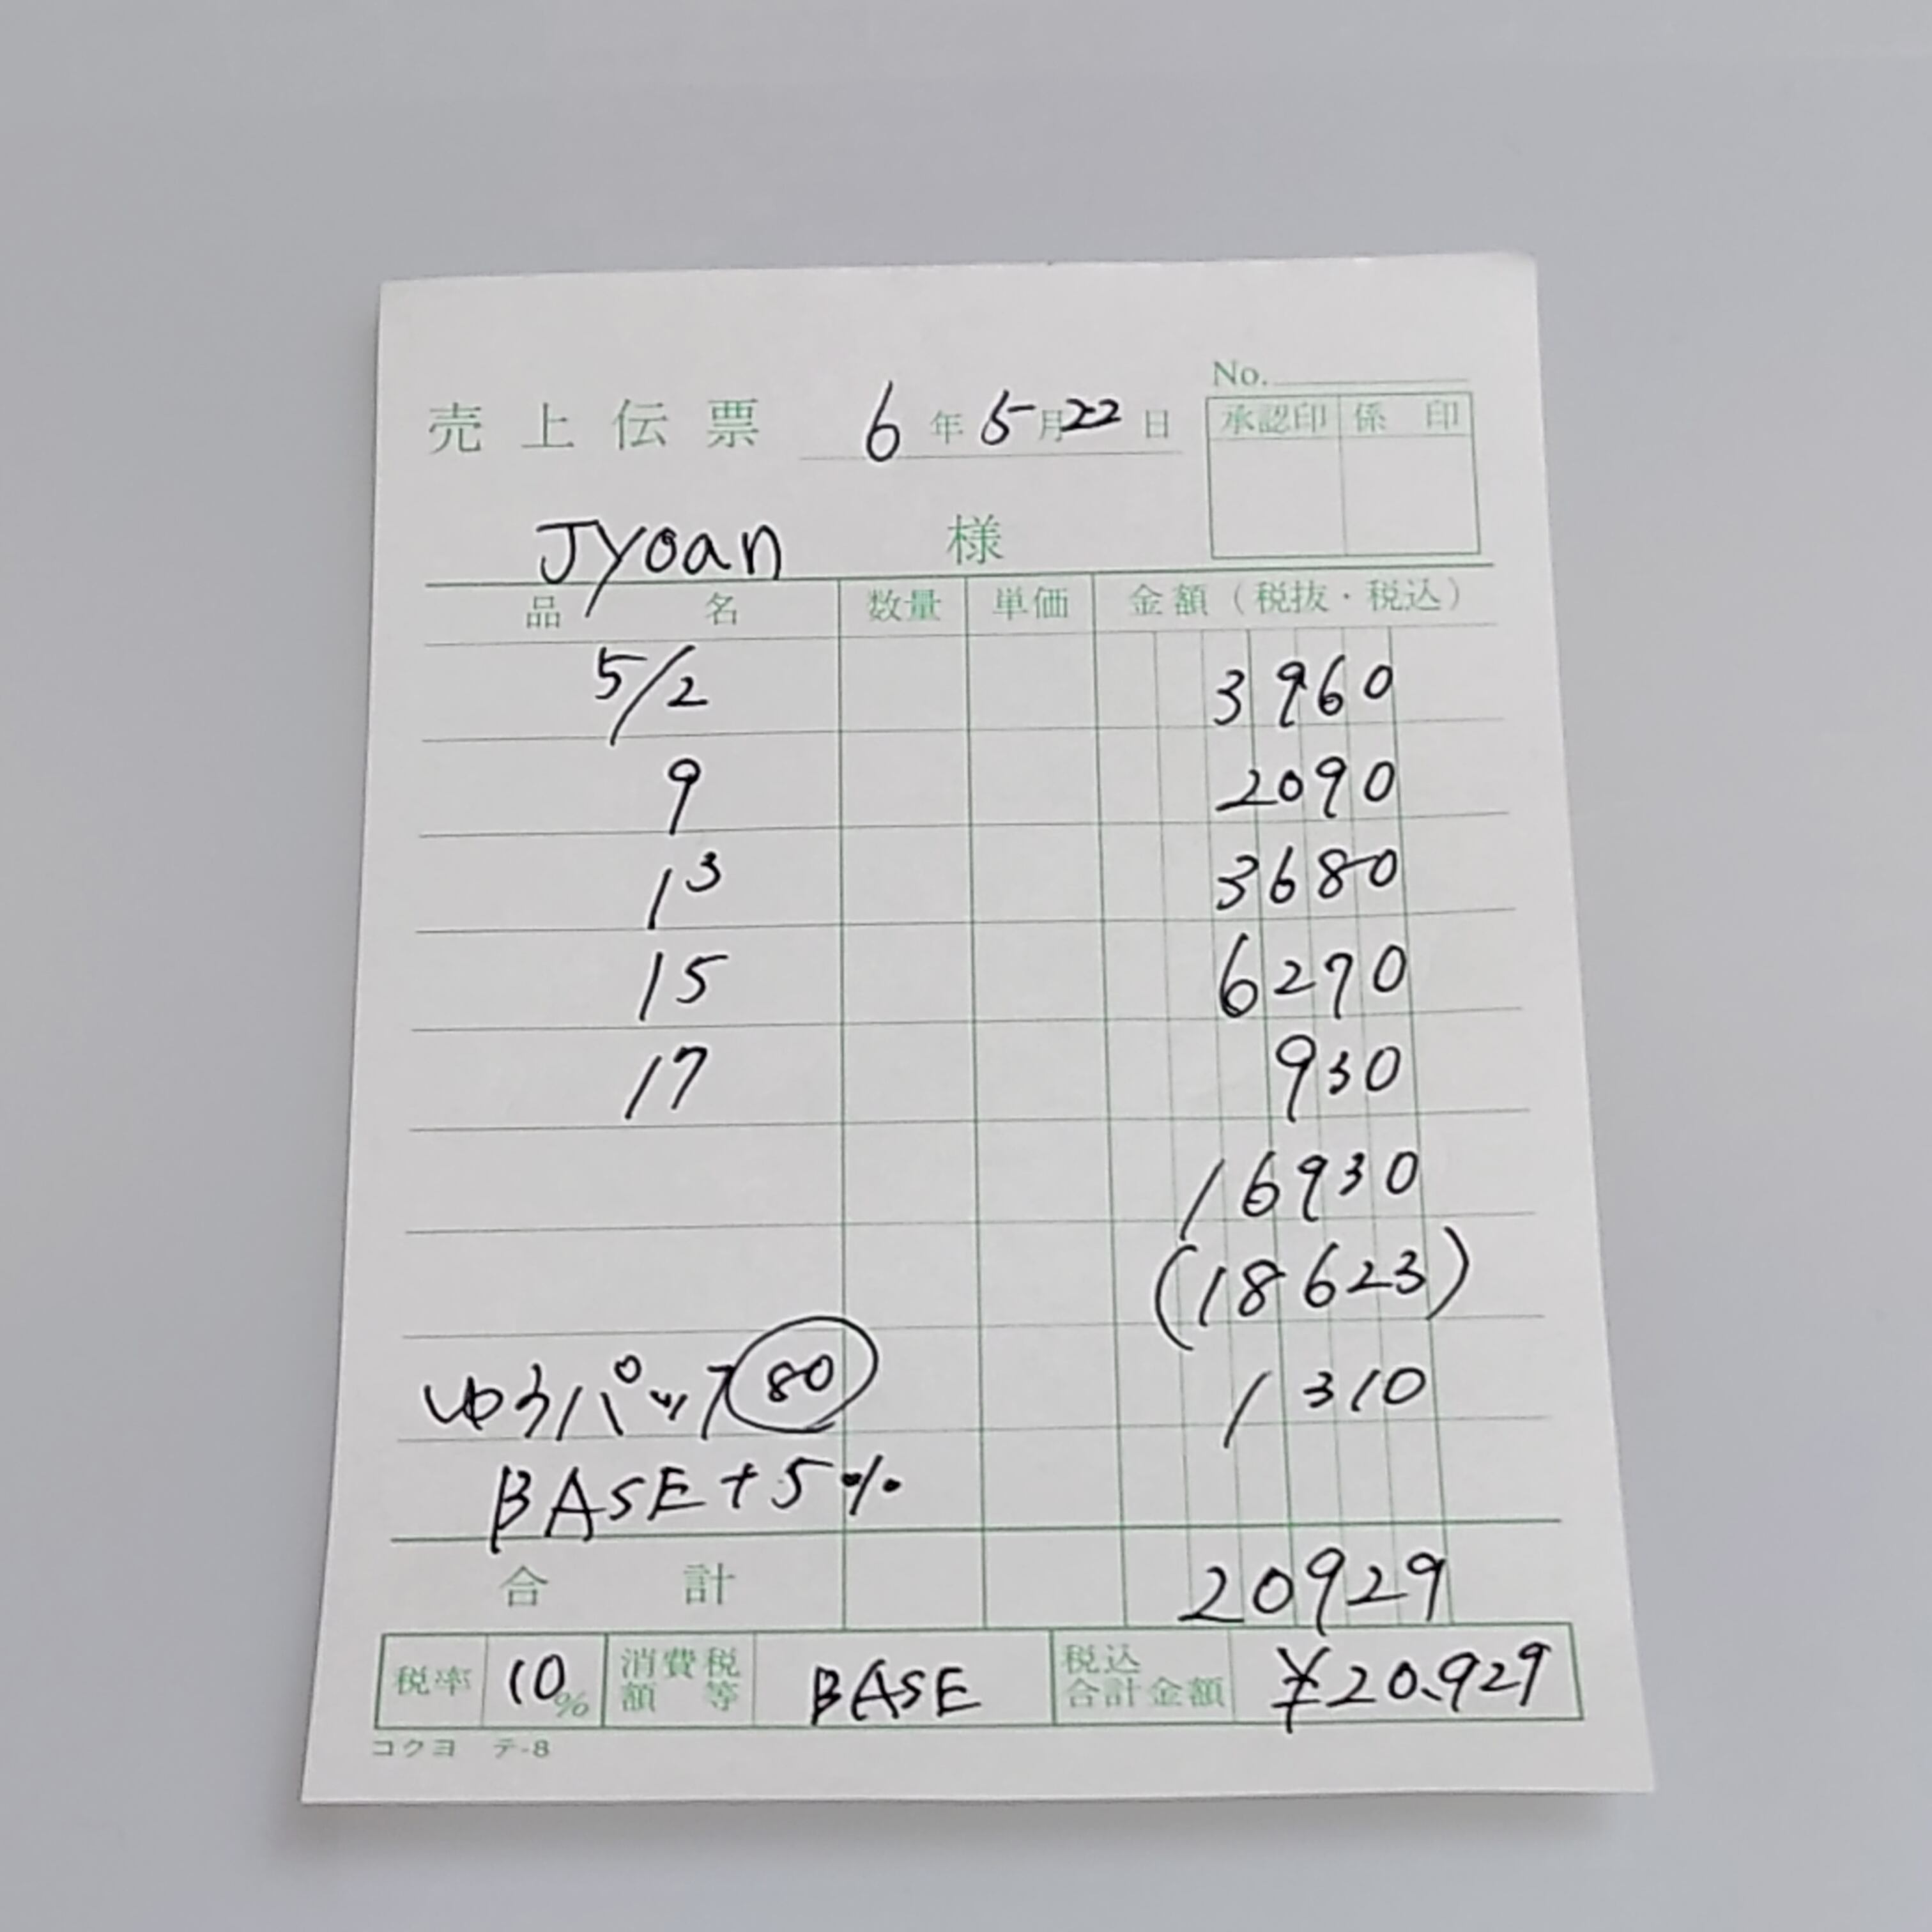 No.
売上伝票 6年5月22日
承認印 係印
Jyoan 様
品名 数量 単価 金額（税抜・税込）
5/2 3960
9 2090
13 3680
15 6270
17 930
16930
(18623)
ゆうパック80 1310
BASE+5%
合計 20929
税率 10% 消費税額等 BASE 税込合計金額 ¥20.929
コクヨ テ-8